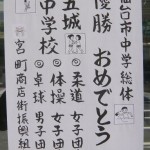 塩口市中学総体
優勝 おめでとう
五城中学校
◎柔道 女子団
◎体操 女子団
◎卓球 男子団
宮町商店街振興組